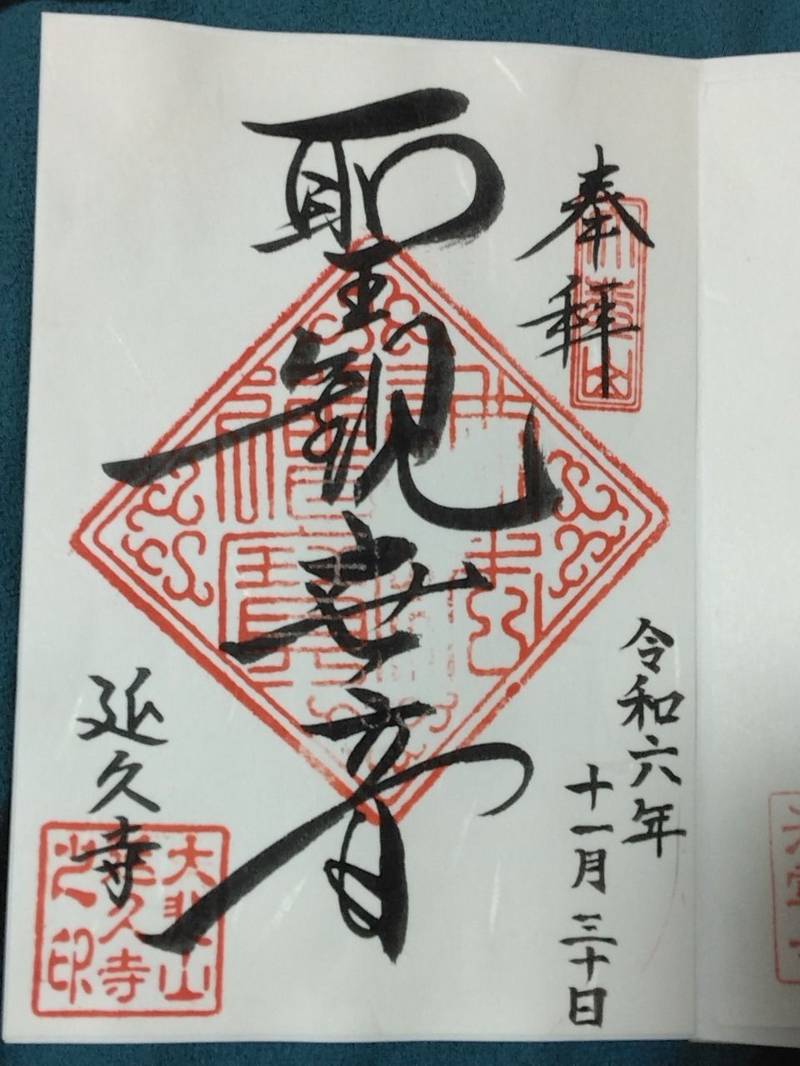 奉拝
令和六年
十一月三十日
聖観世音
延久寺
大悲山
延久寺
之印